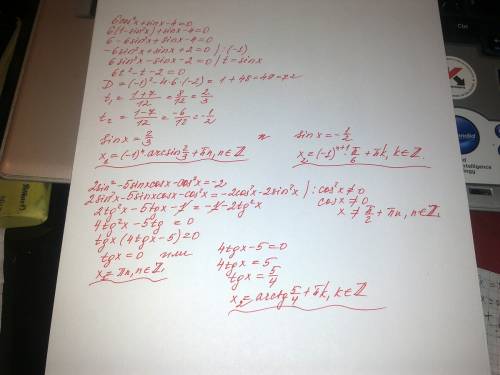 6cos²x+sinx-4=0
6(1-sin²x)+sinx-4=0
6-6sin²x+sinx-4=0
-6sin²x+sinx+2=0 | :(-1)
6sin²x-sinx-2=0 | t=sinx
6t²-t-2=0
D=(-1)²-4·6·(-2)=1+48=49=7²
t₁=(1+7)/12=8/12=2/3
t₂=(1-7)/12=-6/12=-1/2
sinx=2/3 и sinx=-1/2
x₁=(-1)ⁿ·arcsin2/3+πn, n∈Z x₂=(-1)ᵏ⁺¹·π/6+πk, k∈Z.
2sin²-5sinxcosx-cos²x=-2
2sin²x-5sinxcosx-cos²x=-2cos²x-2sin²x | :cos²x≠0
2tg²x-5tgx-1=-2-2tg²x cosx≠0
4tg²x-5tg =0 x≠π/2+πn, n∈Z.
tgx(4tgx-5)=0
tgx=0 или 4tgx-5=0
x₁=πn, n∈Z, 4tgx=5
tgx=5/4
x₂=arctg5/4+πk, k∈Z